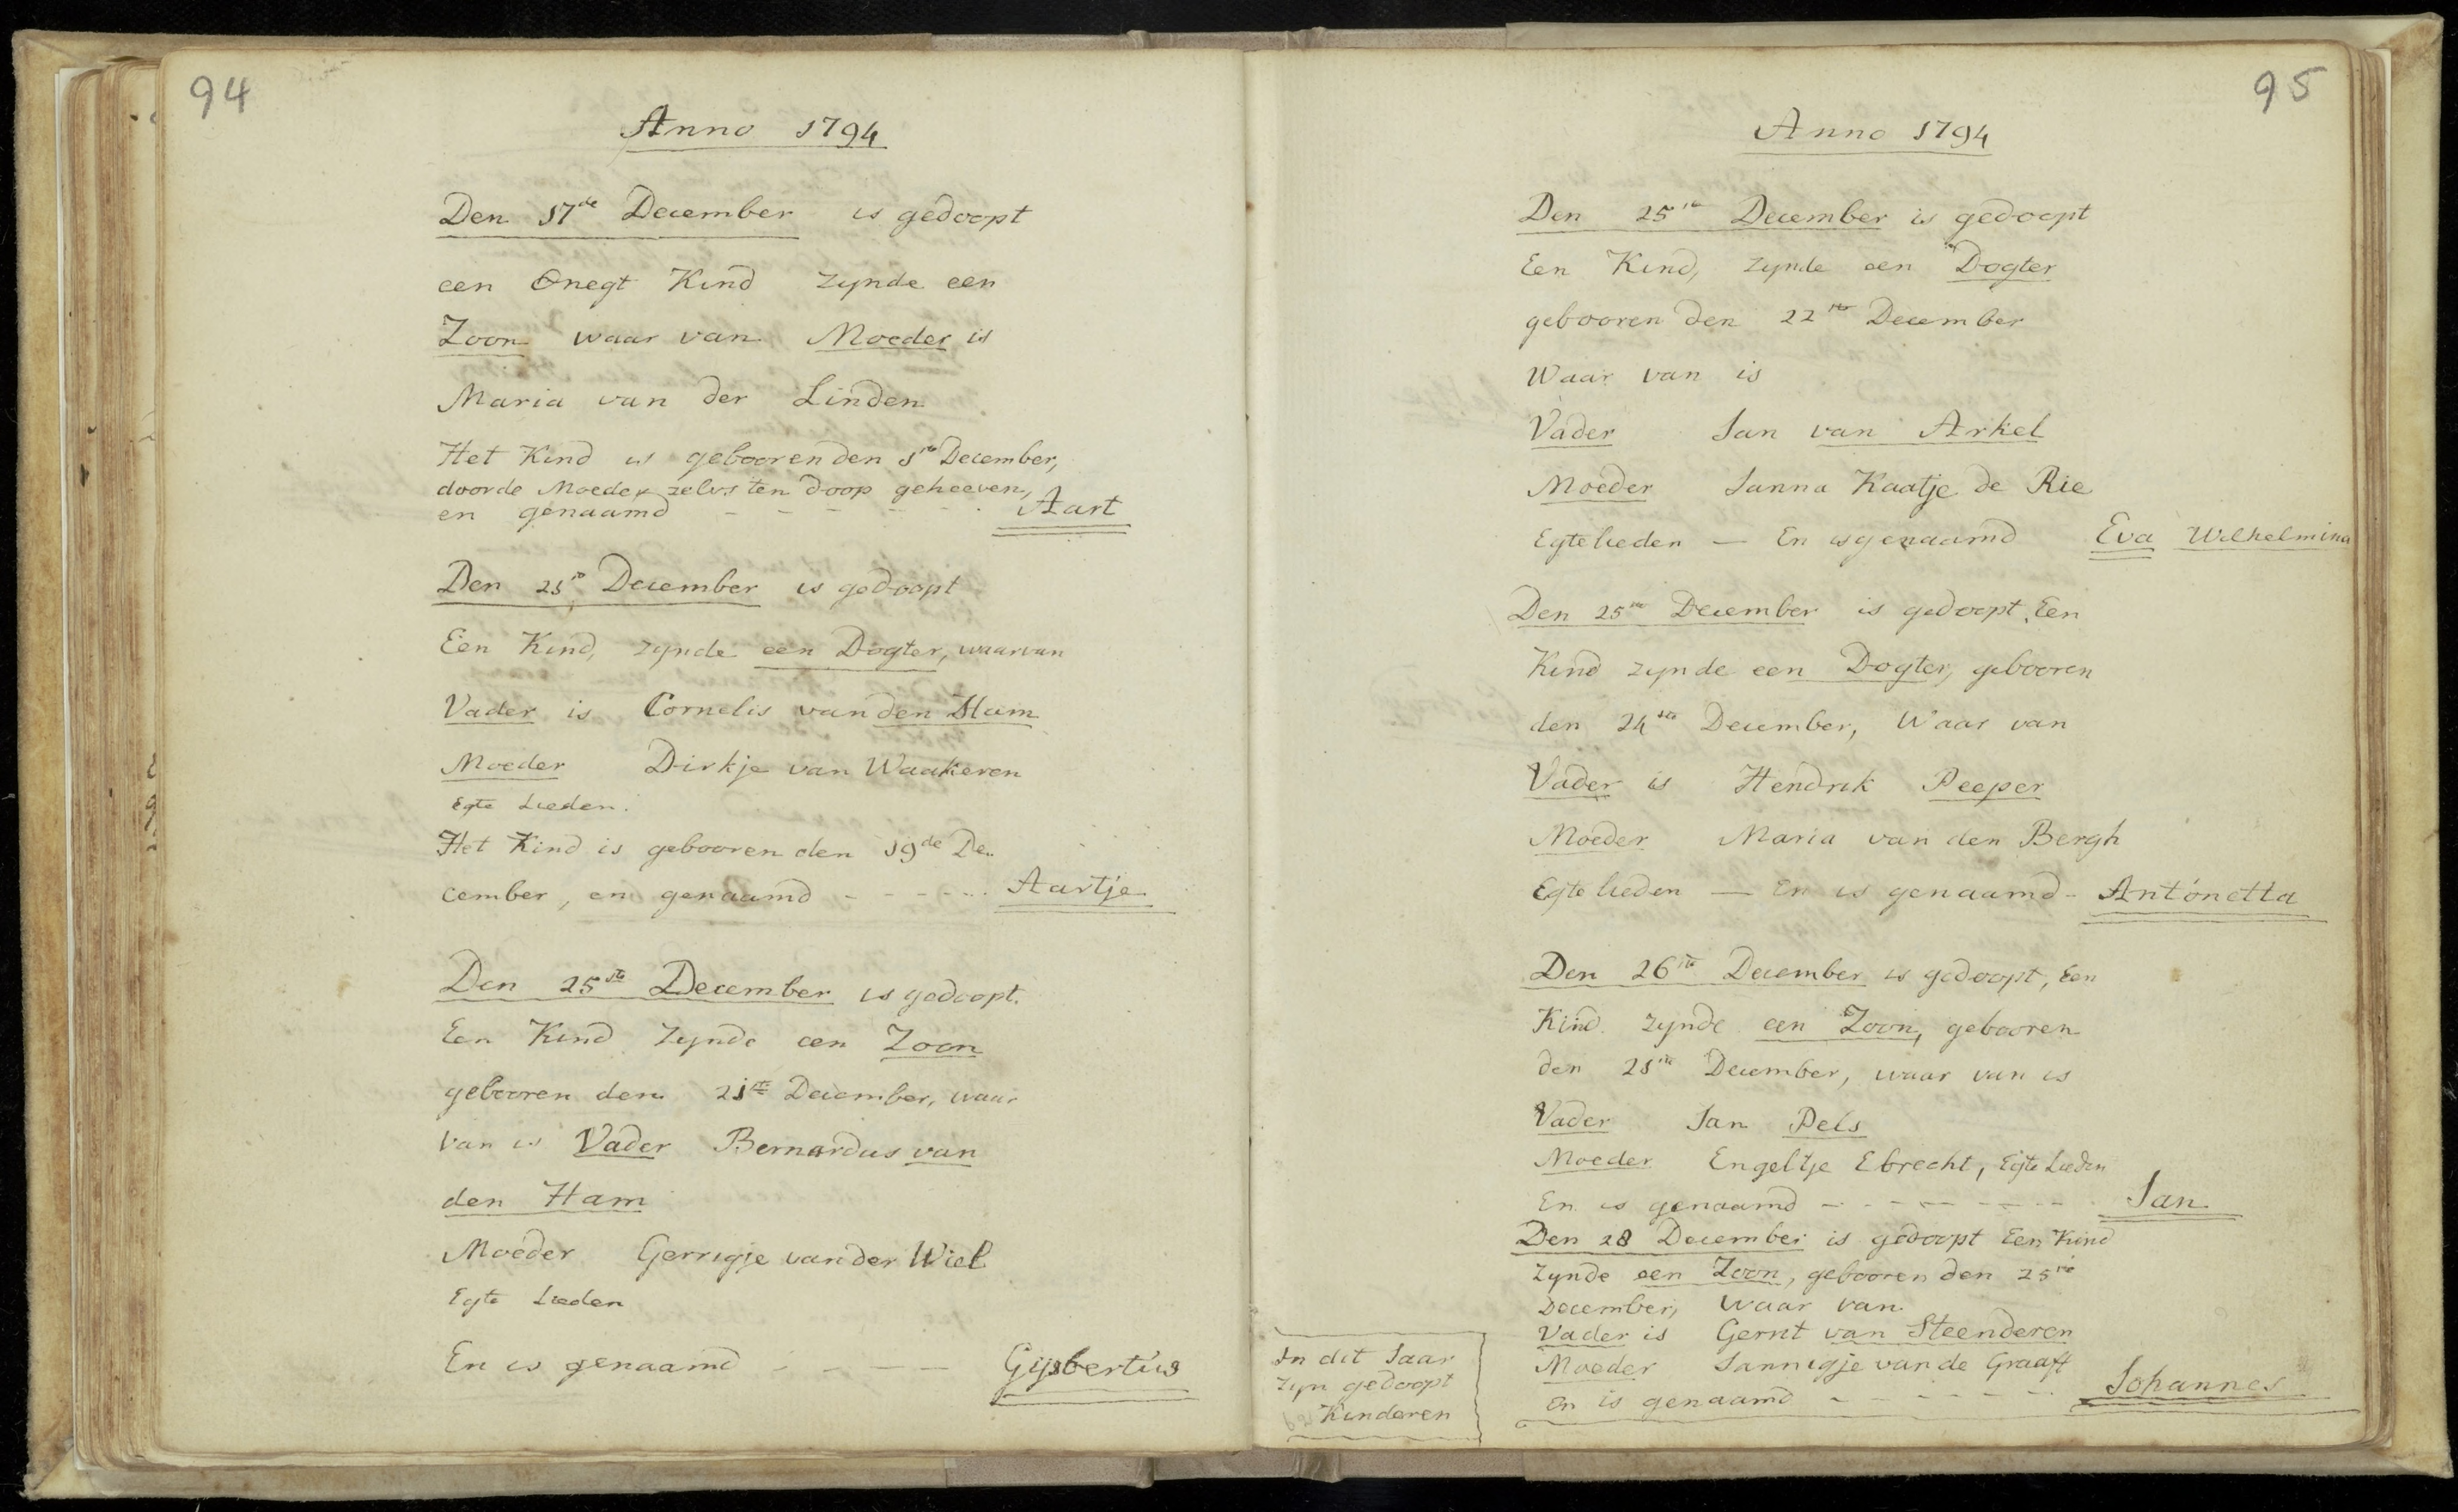 94
Anno 1794
Den 17de December is gedoopt
een Onegt Kind zynde een
Zoon waar van Moeder is
Maria van der Linden
Het Kind is gebooren den 1ste December,
doorde Moeder zelvs ten doop geheeven,
en genaamd - - - - - - Aart
Den 21ste December is gedoopt
Een Kind, zynde een Dogter, waarvan
Vader is Cornelis van den Ham
Moeder Dirkje van Waakeren
Egte Lieden.
Het Kind is gebooren den 19de De
cember, en genaamd - - - - - Aartje
Den 25ste December is gedoopt.
Een Kind zynde een Zoon
gebooren den 21ste December, waar
van is Vader Bernardus van
den Ham
Moeder Gerrigje vander Wiel
Egte Lieden
En is genaamd - - - - Gijsbertus
95
Anno 1794
Den 25ste December is gedoopt
Een Kind, zynde een Dogter
gebooren den 22ste December
Waar van is
Vader Jan van Arkel
Moeder Janna Kaatje de Rie
Egtelieden — En is genaamd Eva Wilhelmina
Den 25ste December is gedoopt, Een
Kind zynde een Dogter, gebooren
den 24ste December, Waar van
Vader is Hendrik Peeper
Moeder Maria van den Bergh
Egtelieden — En is genaamd - Antonetta
Den 26ste December is gedoopt, Een
Kind zynde een Zoon, gebooren
den 21ste December, waar van is
Vader Jan Pels
Moeder Engeltje Ebrecht, Egte Lieden
En is genaamd - - - - - - - Jan
Den 28 December is gedoopt Een Kind
zynde een Zoon, gebooren den 25ste
December, waar van
Vader is Gerrit van Steenderen
Moeder Jannigje van de Graaff
En is genaamd - - - - - - Johannes
In dit Jaar
zyn gedoopt
Kinderen